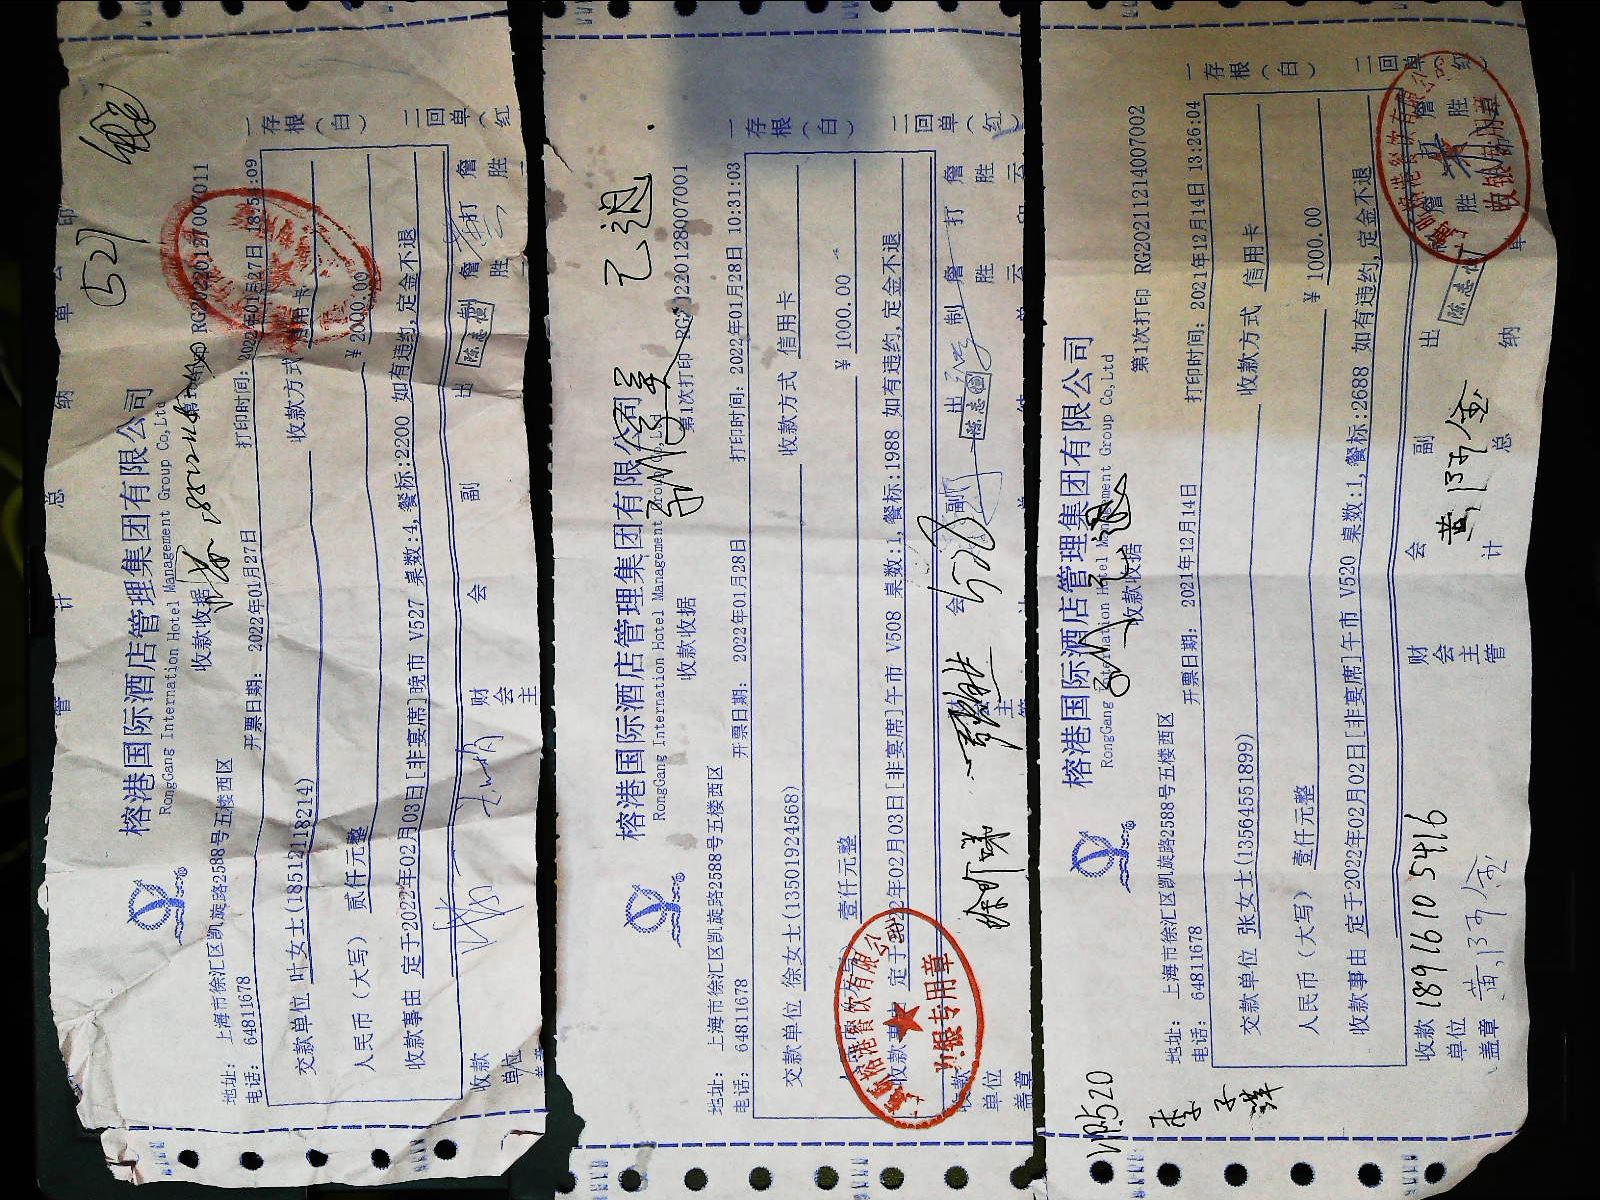 榕港国际酒店管理集团有限公司
RongGang Internation Hotel Management Group Co,Ltd
收款收据
527
地址: 上海市徐汇区凯旋路2588号五楼西区
电话: 64811678
开票日期: 2022年01月27日
打印时间: 2022年01月27日 18:51:09
交款单位 叶女士(18512118214)
收款方式 信用卡
人民币(大写) 贰仟元整
¥ 2000.00
收款事由 定于2022年02月03日[非宴席]晚市 V527 桌数:4,餐标:2200 如有违约,定金不退
收款单位盖章
财会主
会
副
出
陈志
制
詹胜
打
詹胜
一存根(白)
二回单(红
榕港国际酒店管理集团有限公司
RongGang Internation Hotel Management Group Co,Ltd
收款收据
已退
第1次打印
地址: 上海市徐汇区凯旋路2588号五楼西区
电话: 64811678
开票日期: 2022年01月28日
打印时间: 2022年01月28日 10:31:03
交款单位 徐女士(13501924568)
收款方式 信用卡
壹仟元整
¥ 1000.00
收款事由 定于2022年02月03日[非宴席]午市 V508 桌数:1,餐标:1988 如有违约,定金不退
收款单位盖章
会
副
出
陈志
制
詹胜云
打
詹胜云
一存根(白)
二回单(红)
榕港餐饮有限公
收银专用章
榕港国际酒店管理集团有限公司
RongGang Internation Hotel Management Group Co,Ltd
收款收据
第1次打印 RG20211214007002
地址: 上海市徐汇区凯旋路2588号五楼西区
电话: 64811678
开票日期: 2021年12月14日
打印时间: 2021年12月14日 13:26:04
交款单位 张女士(13564551899)
收款方式 信用卡
人民币(大写) 壹仟元整
¥ 1000.00
收款事由 定于2022年02月02日[非宴席]午市 V520 桌数:1,餐标:2688 如有违约,定金不退
收款单位盖章
18916105416
财会主管
会计
副总
出纳
陈志
詹胜
詹胜
一存根(白)
二回单(红
港餐饮有限公
收银专用章
VIP520